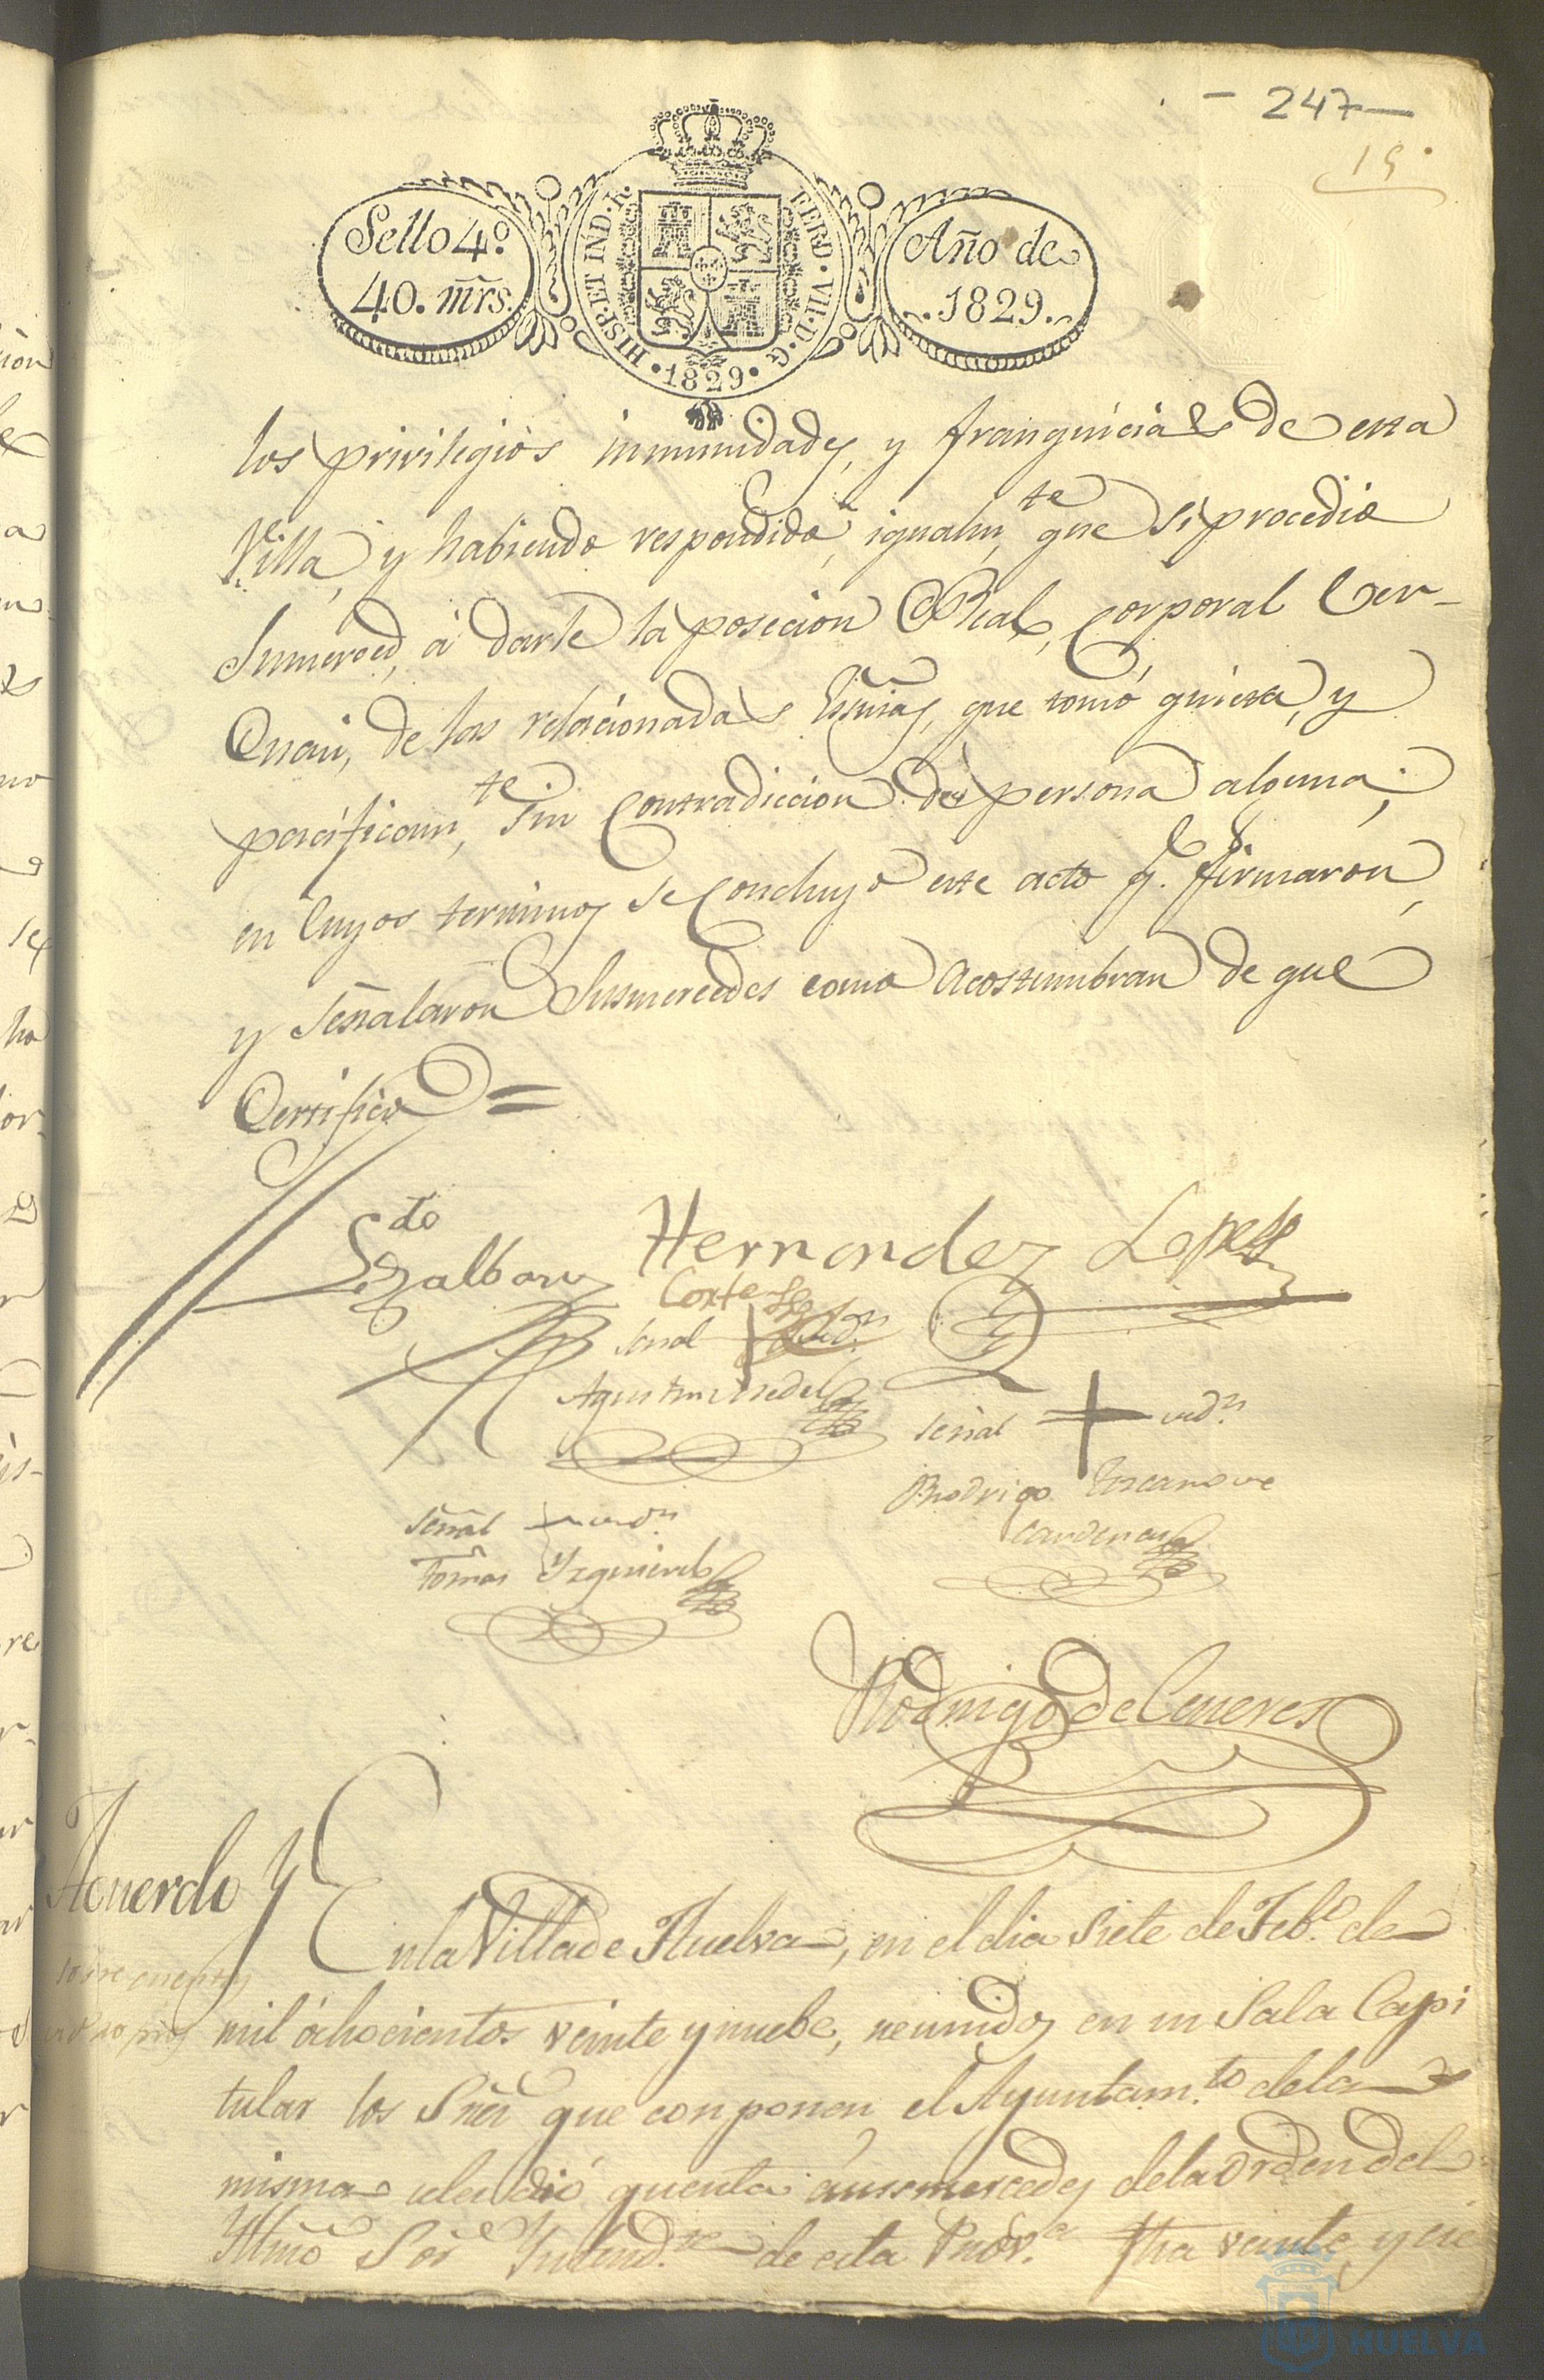 - 247 -
15.
Sello 4º
40. mrs.
HISP. ET IND. R.
FERD. VII. D. G.
· 1829 ·
Año de
1829.
los privilegios inmunidades, y franquicias de esta
Villa, y habiendo respondido igualmte que si procedió
Sumerced, á darle la posecion Real, Corporal Cor-
Cuasi, de las relacionadas que tomó quieta, y
pacificamte sin Contradiccion de persona alguna;
en Cuyos terminos se Concluyó este acto q. firmaron
y Señalaron Susmercedes como acostumbran de que
Certifico =
Hernandez Lopez
Corte
Señal + de Dn
Agustin
Señal + de Dn
Rodrigo
Cardenas
Señal + de Dn
Tomas Yzquierdo
Rodrigo de Ceneres
Acuerdo
En la Villa de Huelva, en el dia Siete de Febº de
sobre cuentas
mil ochocientos veinte y nuebe, reunidos en su Sala Capi
de propios
tular los Sres que conponen el Ayuntamto de la
misma se les dió quenta á susmercedes de la orden del
Yllmo Sor Yntendte de esta Prova fha veinte y
HUELVA